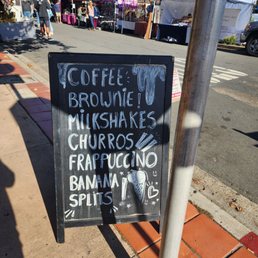 COFFEE:
BROWNIE!
MILKSHAKES
CHURROS
FRAPPUCCINO
BANANA
SPLITS